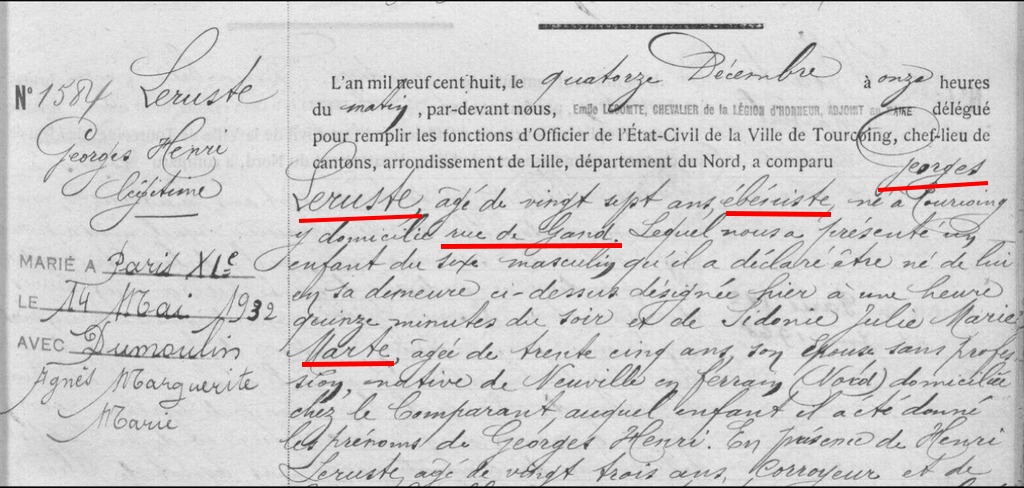 N° 1584 Leruste
Georges Henri
légitime
MARIÉ A Paris XIe
LE 14 Mai 1932
AVEC Dumoulin
Agnès Marguerite
Marie
L'an mil neuf cent huit, le quatorze Décembre à onze heures
du matin, par-devant nous, Emile LECOMTE, CHEVALIER de la LÉGION D'HONNEUR, ADJOINT au MAIRE délégué
pour remplir les fonctions d'Officier de l'État-Civil de la Ville de Tourcoing, chef-lieu de
cantons, arrondissement de Lille, département du Nord, a comparu Georges
Leruste, âgé de vingt sept ans, ébéniste, né à Tourcoing
y domicilié rue de Gand. Lequel nous a présenté un
enfant du sexe masculin qu'il a déclaré être né de lui
en sa demeure ci-dessus désignée hier à une heure
quinze minutes du soir et de Sidonie Julie Marie
Marte, âgée de trente cinq ans, son épouse sans profes
sion, native de Neuville en ferrain (Nord) domiciliée
chez le Comparant auquel enfant il a été donné
les prénoms de Georges Henri. En présence de Henri
Leruste, âgé de vingt trois ans, Corroyeur et de